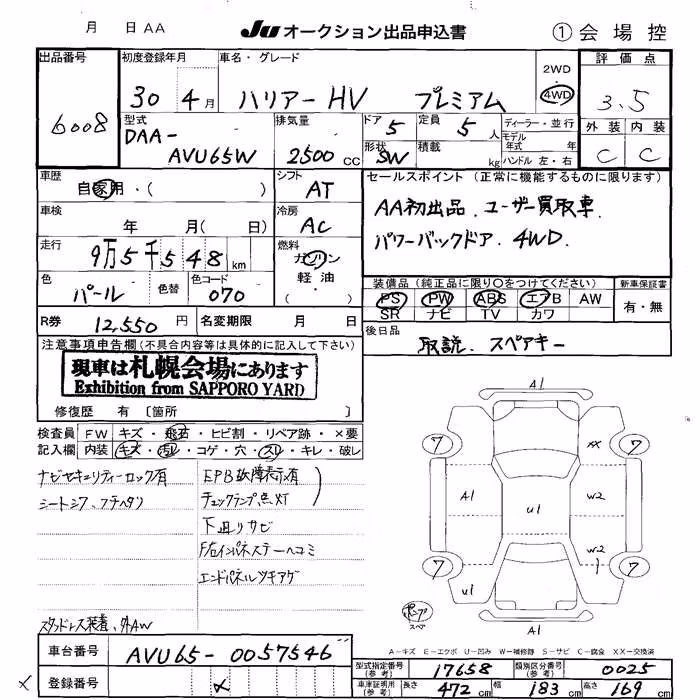 月 日 AA JU オークション出品申込書 ① 会場控
出品番号 初度登録年月 車名・グレード 2WD・4WD 評価点
6008 30 4月 ハリアー HV プレミアム 3.5
型式 排気量 ドア 定員 ディーラー・並行 外装 内装
DAA-AVU65W 2500cc 5 5人 モデル年式 年 C C
形状 積載 ハンドル 左・右
SW kg
車歴 シフト セールスポイント (正常に機能するものに限ります)
自家用・( ) AT
AA初出品 ユーザー買取車.
車検 冷房
年 月( 日) AC
パワーバックドア. 4WD.
走行 燃料
9万5千548km ガソリン 軽油 ( )
色 色替 色コード
パール 070
装備品 (純正品に限り〇をつけてください) 新車保証書
PS PW ABS エアB AW 有・無
SR ナビ TV カワ
R券 12,550円 名変期限 月 日
後日品 取説. スペアキー
注意事項申告欄(不具合内容等は具体的に記入して下さい)
現車は札幌会場にあります
Exhibition from SAPPORO YARD
修復歴 有 〔箇所 〕
検査員 FW キズ・飛石・ヒビ割・リペア跡・×要
記入欄 内装 キズ・汚レ・コゲ・穴・スレ・キレ・破レ
ナビセキュリティーロック有 EPB故障表示有
シートシワ、フチヘタリ チェックランプ点灯
下廻リサビ
F右インパネステーヘコミ
エンドパネルツキアゲ
スタッドレス装着、外AW
A1
7 XX 7
A1 U1 W2
W2
7 U1 7
スペア
A1
A-キズ E-エクボ U-凹み W-補修跡 S-サビ C-腐食 XX-交換済
車台番号 AVU65-0057546
登録番号
型式指定番号(参考) 17658 類別区分番号(参考) 0025
車庫証明用(参考) 長さ 472cm 幅 183cm 高さ 169cm